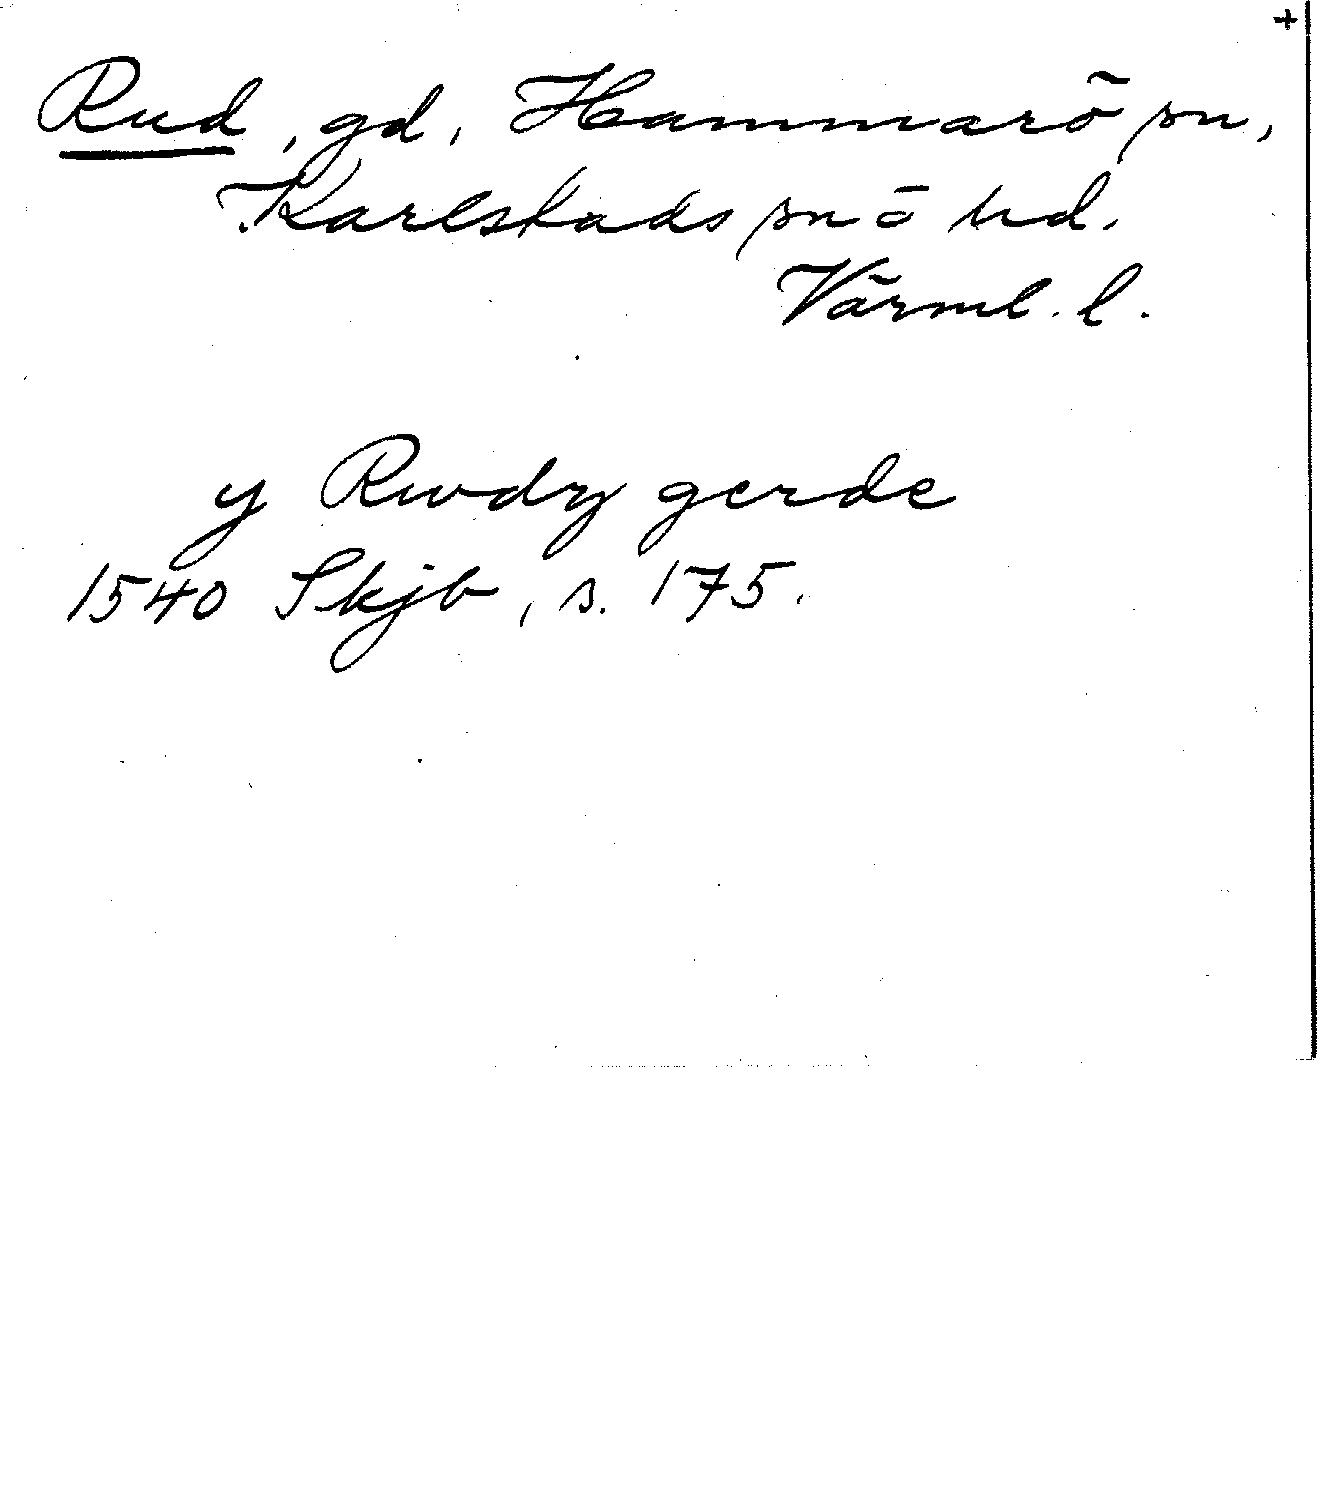 +
Rud, gd, Hammarö sn,
Karlstads sn o hd.
Värml. l.
y Rwdz gerde
1540 Skjb, s. 175.